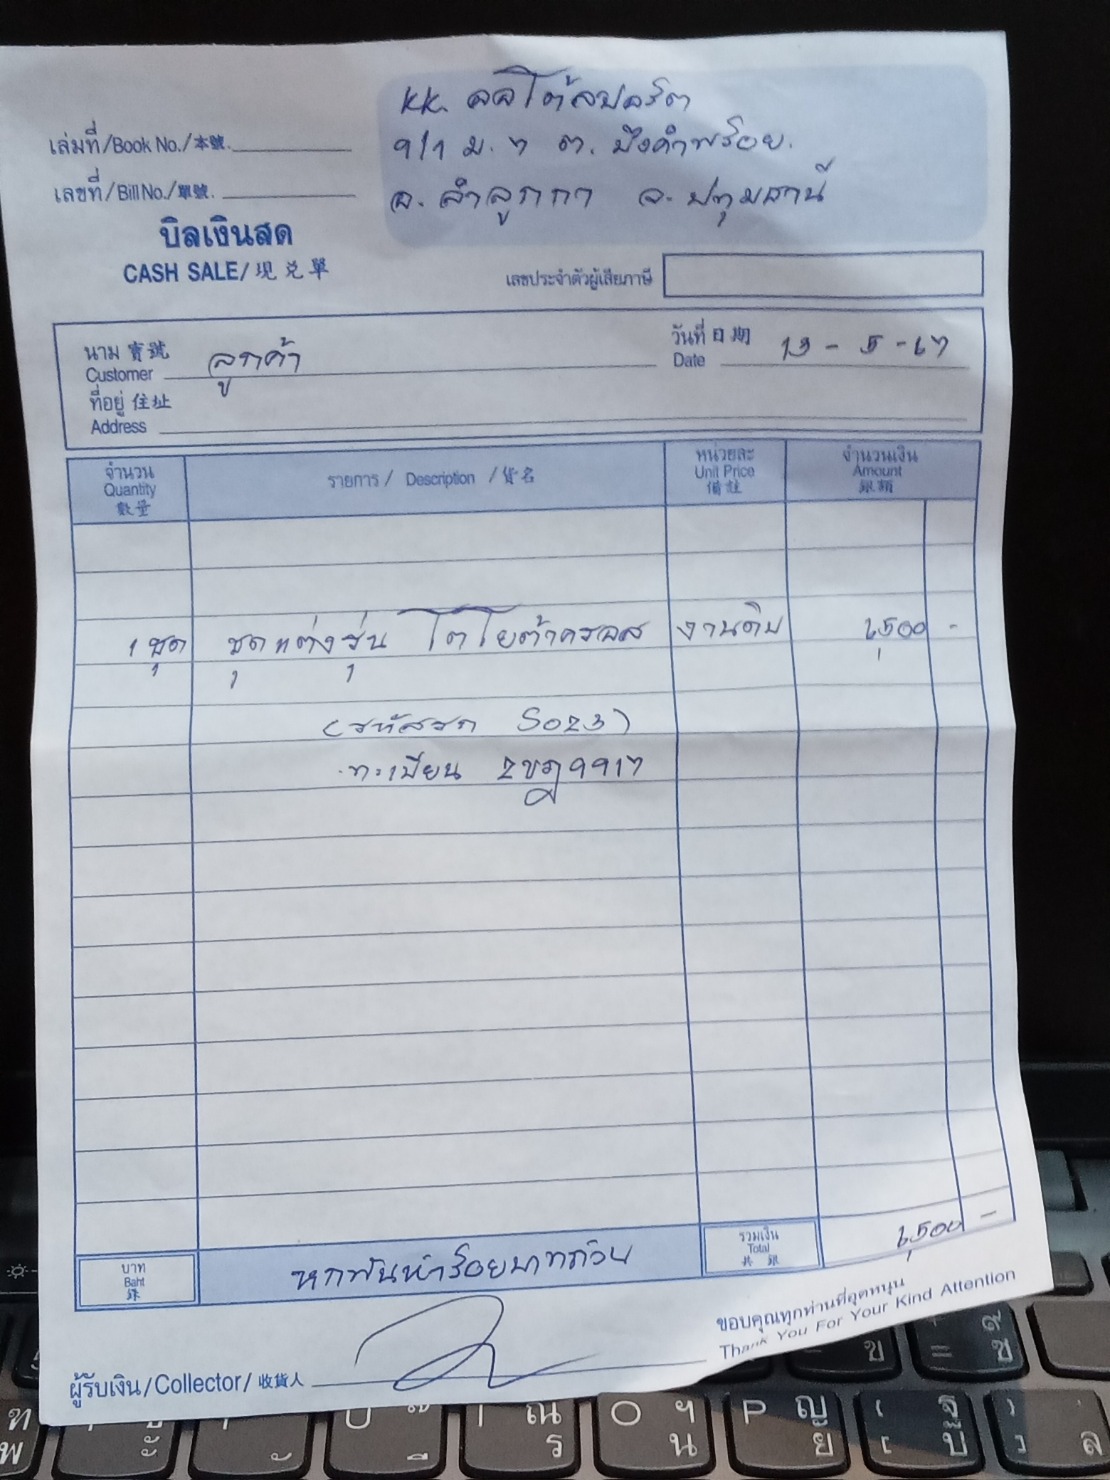 KK. ออโต้สปอร์ต
9/1 ม. 7 ต. บึงคำพร้อย.
อ. ลำลูกกา จ. ปทุมธานี
เล่มที่/Book No./本號.
เลขที่/Bill No./單號.
บิลเงินสด
CASH SALE/現兌單
เลขประจำตัวผู้เสียภาษี
นาม 寶號 ลูกค้า วันที่ 日期 13-5-67
Customer Date
ที่อยู่ 住址
Address
จำนวน รายการ / Description / 貨名 หน่วยละ จำนวนเงิน
Quantity Unit Price Amount
數量 備註 銀額
1 ชุด ชุดแต่งรุ่น โตโยต้าครอส งานดิบ 6,500 -
(รหัสรถ S023)
ทะเบียน 2ขฎ9917
บาท หกพันห้าร้อยบาทถ้วน รวมเงิน 6,500 -
Baht Total
銖 共銀
ขอบคุณทุกท่านที่อุดหนุน
Thank You For Your Kind Attention
ผู้รับเงิน/Collector/收貨人